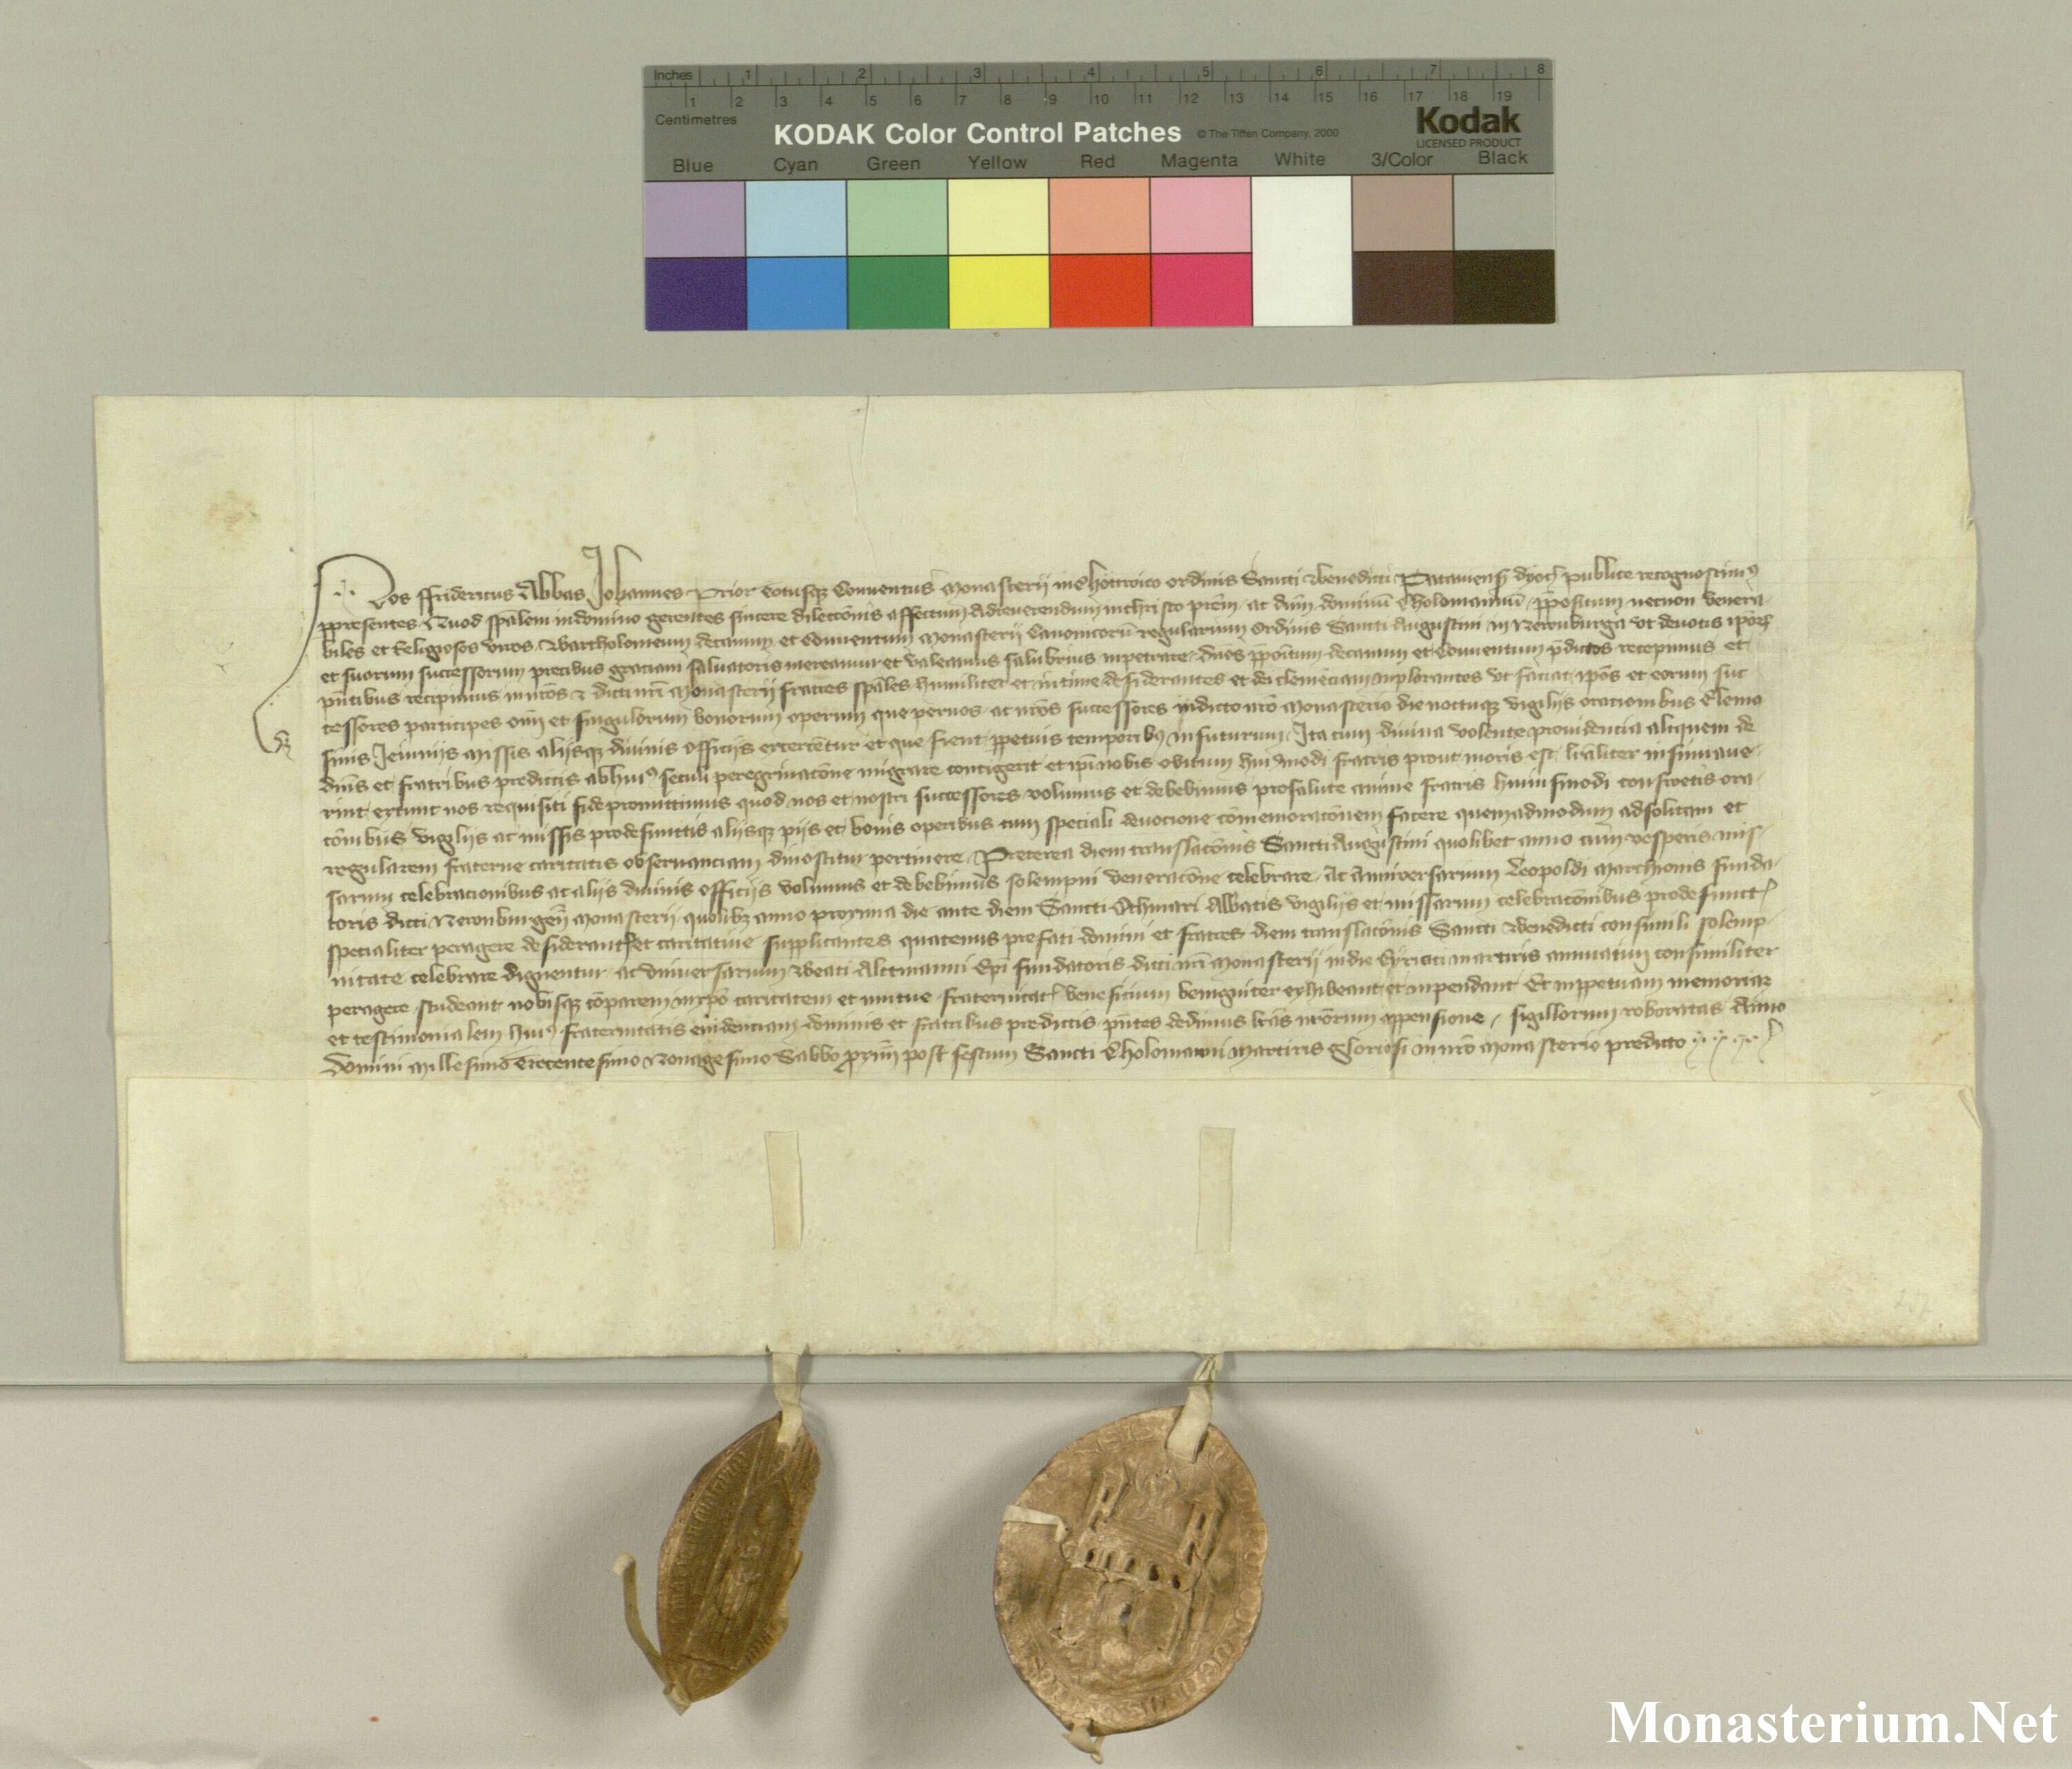 Inches 1 2 3 4 5 6 7 8
1 2 3 4 5 6 7 8 9 10 11 12 13 14 15 16 17 18 19
Centimetres
KODAK Color Control Patches © The Tiffen Company, 2000 Kodak
LICENSED PRODUCT
Blue Cyan Green Yellow Red Magenta White 3/Color Black
Nos ffridericus Abbas Johannes Prior totusqz Conuentus Monasterii in Chottwico ordinis Sancti Benedicti Patauiens dyoc publice recognoscimus
p presentes Quod spalem in domino gerentes sincere dileccionis affectum ad reuerendum in christo prem ac dnm dominu Cholomannu ppositum necnon venera
biles et Religiosos viros Bartholomeum decanum et Conuentum Monasterii Canonicoru regularium Ordinis Sancti Augustini in Newnburga vt deuotis ipor
et suorum successorum precibus graciam saluatoris mereamur et valeamus salubrius inpetrare dnos ppoitum decanum et Conuentum pdictos recepimus et
pntibus recipimus in nros et dicti nri Monasterii fratres spales humiliter et intime desiderantes et dei clemenciam inplorantes vt faciat ipos et eorum suc
cessores participes oim et singulorum bonorum operum que per nos ac nros successores in dicto nro Monasterio die noctuqz vigilijs orationibus Elemo
sinis Jeiunijs Missis alijsqz diuinis officijs exercentur et que fient ppetuis temporibus in futurum Ita cum diuina volente prouidencia aliquem de
dnis et fratribus predictis ab huius seculi peregrinacone migrare contigerit et ipi nobis obitum huiusmodi fratris prout moris est lraliter insinuaue
rint extunc nos requisiti fide promittimus quod nos et nostri successores volumus et debebimus pro salute anime fratris huiusmodi conswetis ora
conibus vigilijs ac missis pro defunctis alijsqz pijs et bonis operibus cum speciali deuocione comemoraconem facere quemadmodum ad solitam et
regularem fraterne caritatis obseruanciam dinoscitur pertinere Preterea diem translaconis Sancti Augustini quolibet anno cum vesperis mis
sarum celebracionibus ac alijs diuinis officijs volumus et debebimus solempni veneracone celebrare Ac anniuersarium Leopoldi Marchionis funda
toris dicti Newnburgen Monasterii quolibz anno proxima die ante diem Sancti Othmari Abbatis vigilijs et missarum celebraconibus pro defunct
specialiter peragere desiderant et caritatiue supplicantes quatenus prefati domini et fratres diem translaconis Sancti Benedicti consimili solemp
nitate celebrare dignentur ac vniuersarium Beati Altmanni Epi fundatoris dicti nri Monasterii in die Cyriaci martiris annuatim consimiliter
peragere studeant nobisqz coparem in xpo caritatem et mutue fraternitat beneficium benigniter exhibeant et inpendant Et in ppetuam memoriam
et testimonialem huius fraternitatis euidenciam dominis et fratribus predictis pntes dedimus lras nrorum appensione sigillorum roboratas Anno
domini Millesimo Trecentesimo Nonagesimo Sabbo proxim post festum Sancti Cholomanni Martiris gloriosi in nro Monasterio predicto
Monasterium.Net